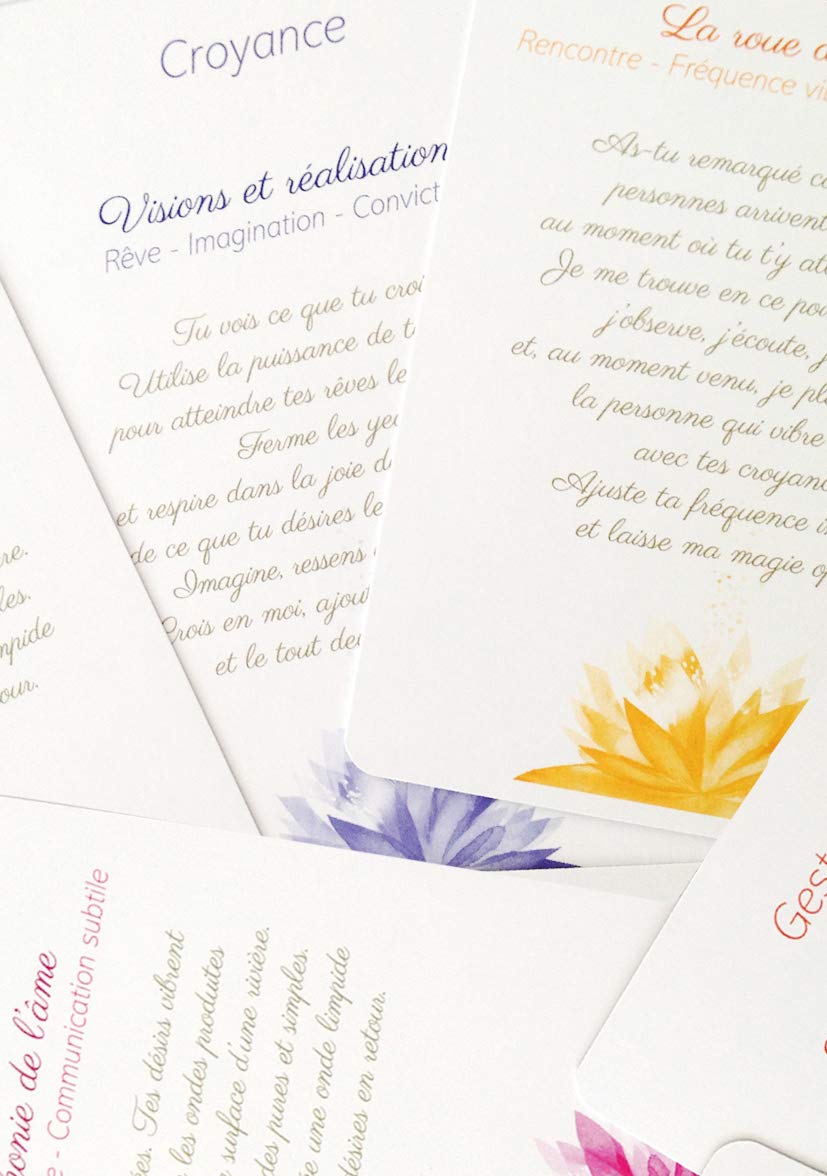 Croyance
Visions et réalisation
Rêve - Imagination - Convict
Tu vois ce que tu croi
Utilise la puissance de t
pour atteindre tes rêves le
Ferme les yeu
et respire dans la joie d
de ce que tu désires le
Imagine, ressens
Crois en moi, ajout
et le tout de
La roue d
Rencontre - Fréquence vi
As-tu remarqué c
personnes arrivent
au moment où tu t'y att
Je me trouve en ce po
j'observe, j'écoute, j
et, au moment venu, je pl
la personne qui vibre
avec tes croyanc
Ajuste ta fréquence i
et laisse ma magie op
re.
les.
mpide
our.
onie de l'âme
e - Communication subtile
ées. Tes désirs vibrent
les ondes produites
surface d'une rivière.
des pures et simples.
ie une onde limpide
désires en retour.
Gest